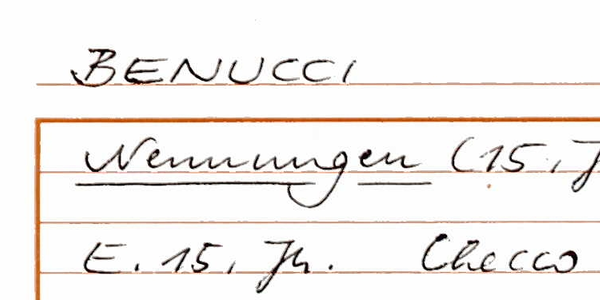 BENUCCI
Nennungen (15. J
E. 15. Jh. Checco